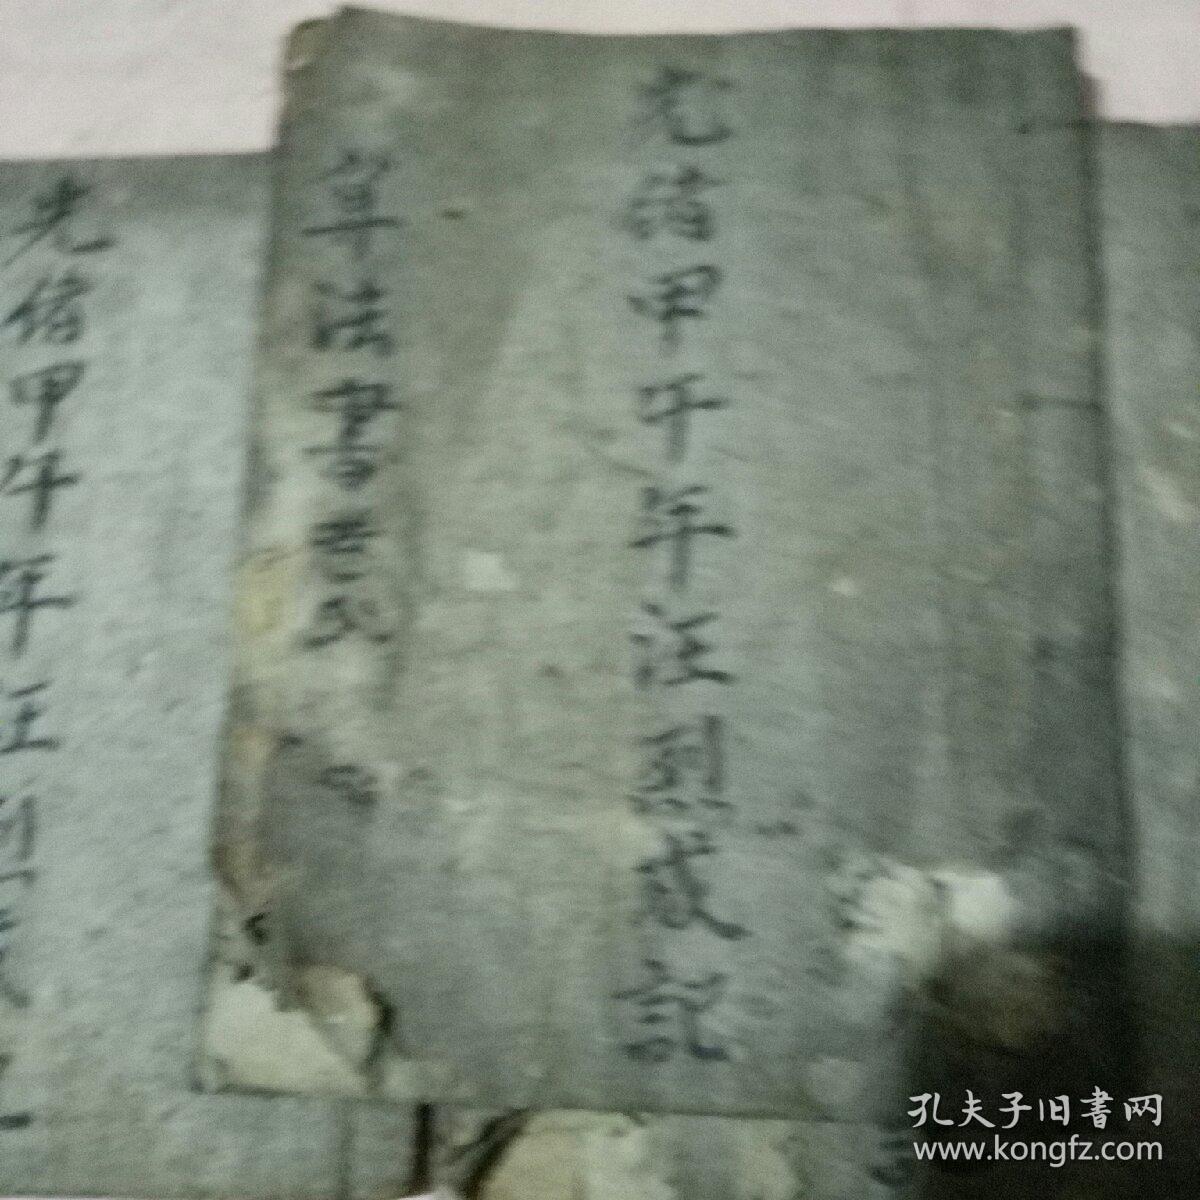 光緒甲午年汪烈成記
算法書卷貳
光緒甲午年汪烈成
孔夫子旧書网
www.kongfz.com